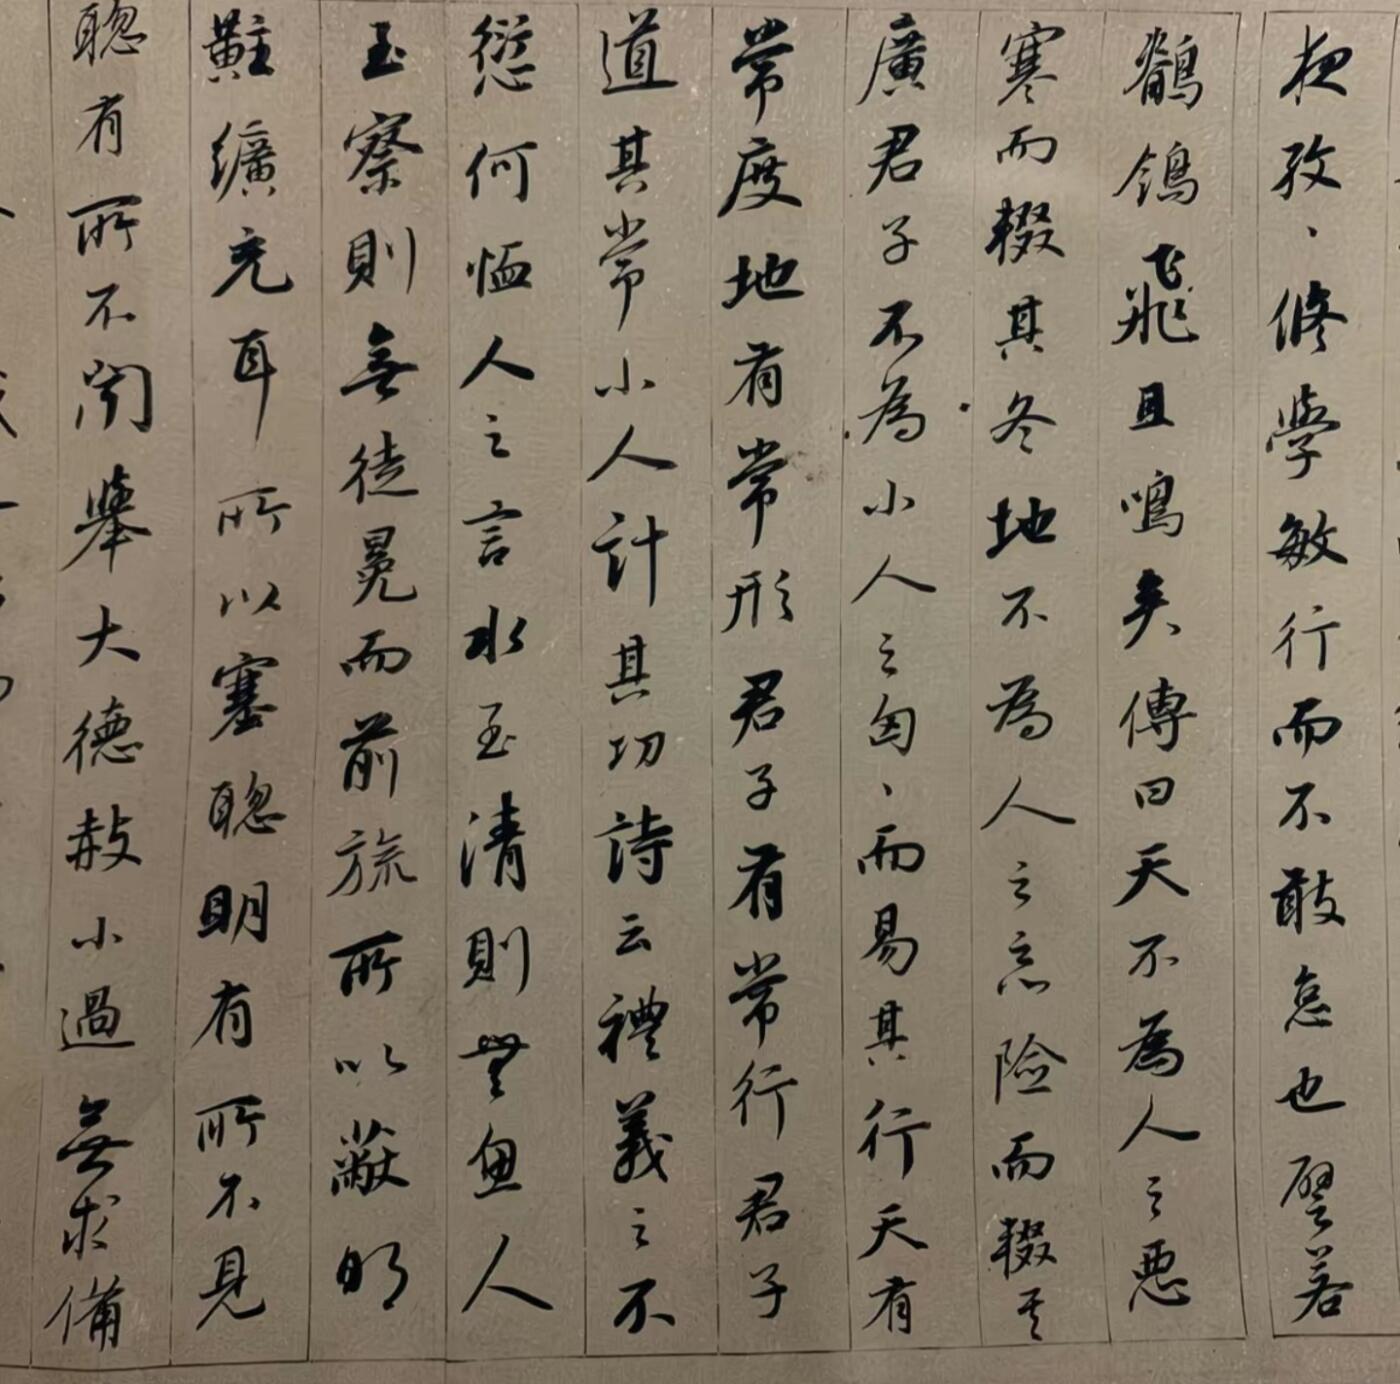 夜孜、修學敏行而不敢怠也譬若
鶺鴒飛且鳴矣傳曰天不為人之惡
寒而輟其冬地不為人之惡險而輟其
廣君子不為小人之匈、而易其行天有
常度地有常形君子有常行君子
道其常小人計其功詩云禮義之不
愆何恤人之言水至清則無魚人
至察則無徒冕而前旒所以蔽明
黈纊充耳所以塞聰明有所不見
聰有所不聞舉大德赦小過無求備